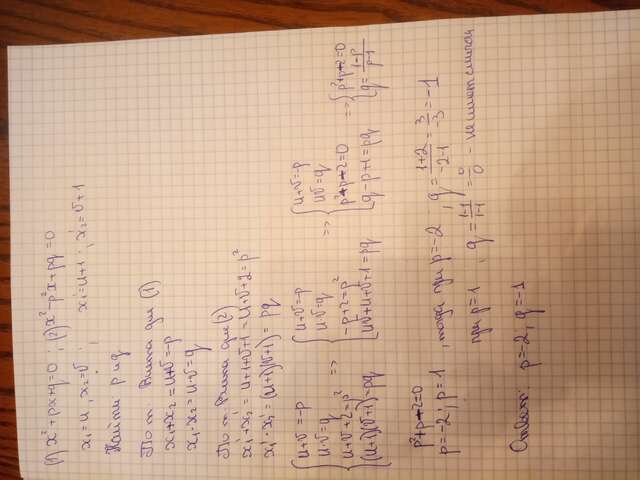 (1) x²+px+q=0 ; (2) x²-p²x+pq=0
x₁=u, x₂=v ; x₁'=u+1 ; x₂'=v+1
Найти p и q
По т. Виета для (1)
x₁+x₂=u+v=-p
x₁·x₂=u·v=q
По т. Виета для (2)
x₁'+x₂'=u+1+v+1=u+v+2=p²
x₁'·x₂'=(u+1)(v+1)=pq
{u+v=-p {u+v=-p {u+v=-p
u·v=q uv=q uv=q
u+v+2=p² => -p+2=p² => p²+p-2=0 => {p²+p-2=0
(u+1)(v+1)=pq uv+u+v+1=pq q-p+1=pq q=\frac{1-p}{p-1}
p²+p-2=0
p=-2; p=1 , тогда при p=-2 , q=\frac{1+2}{-2-1}=\frac{3}{-3}=-1
при p=1 , q=\frac{1-1}{1-1}=\frac{0}{0} - не имеет смысла
Ответ: p=-2; q=-1